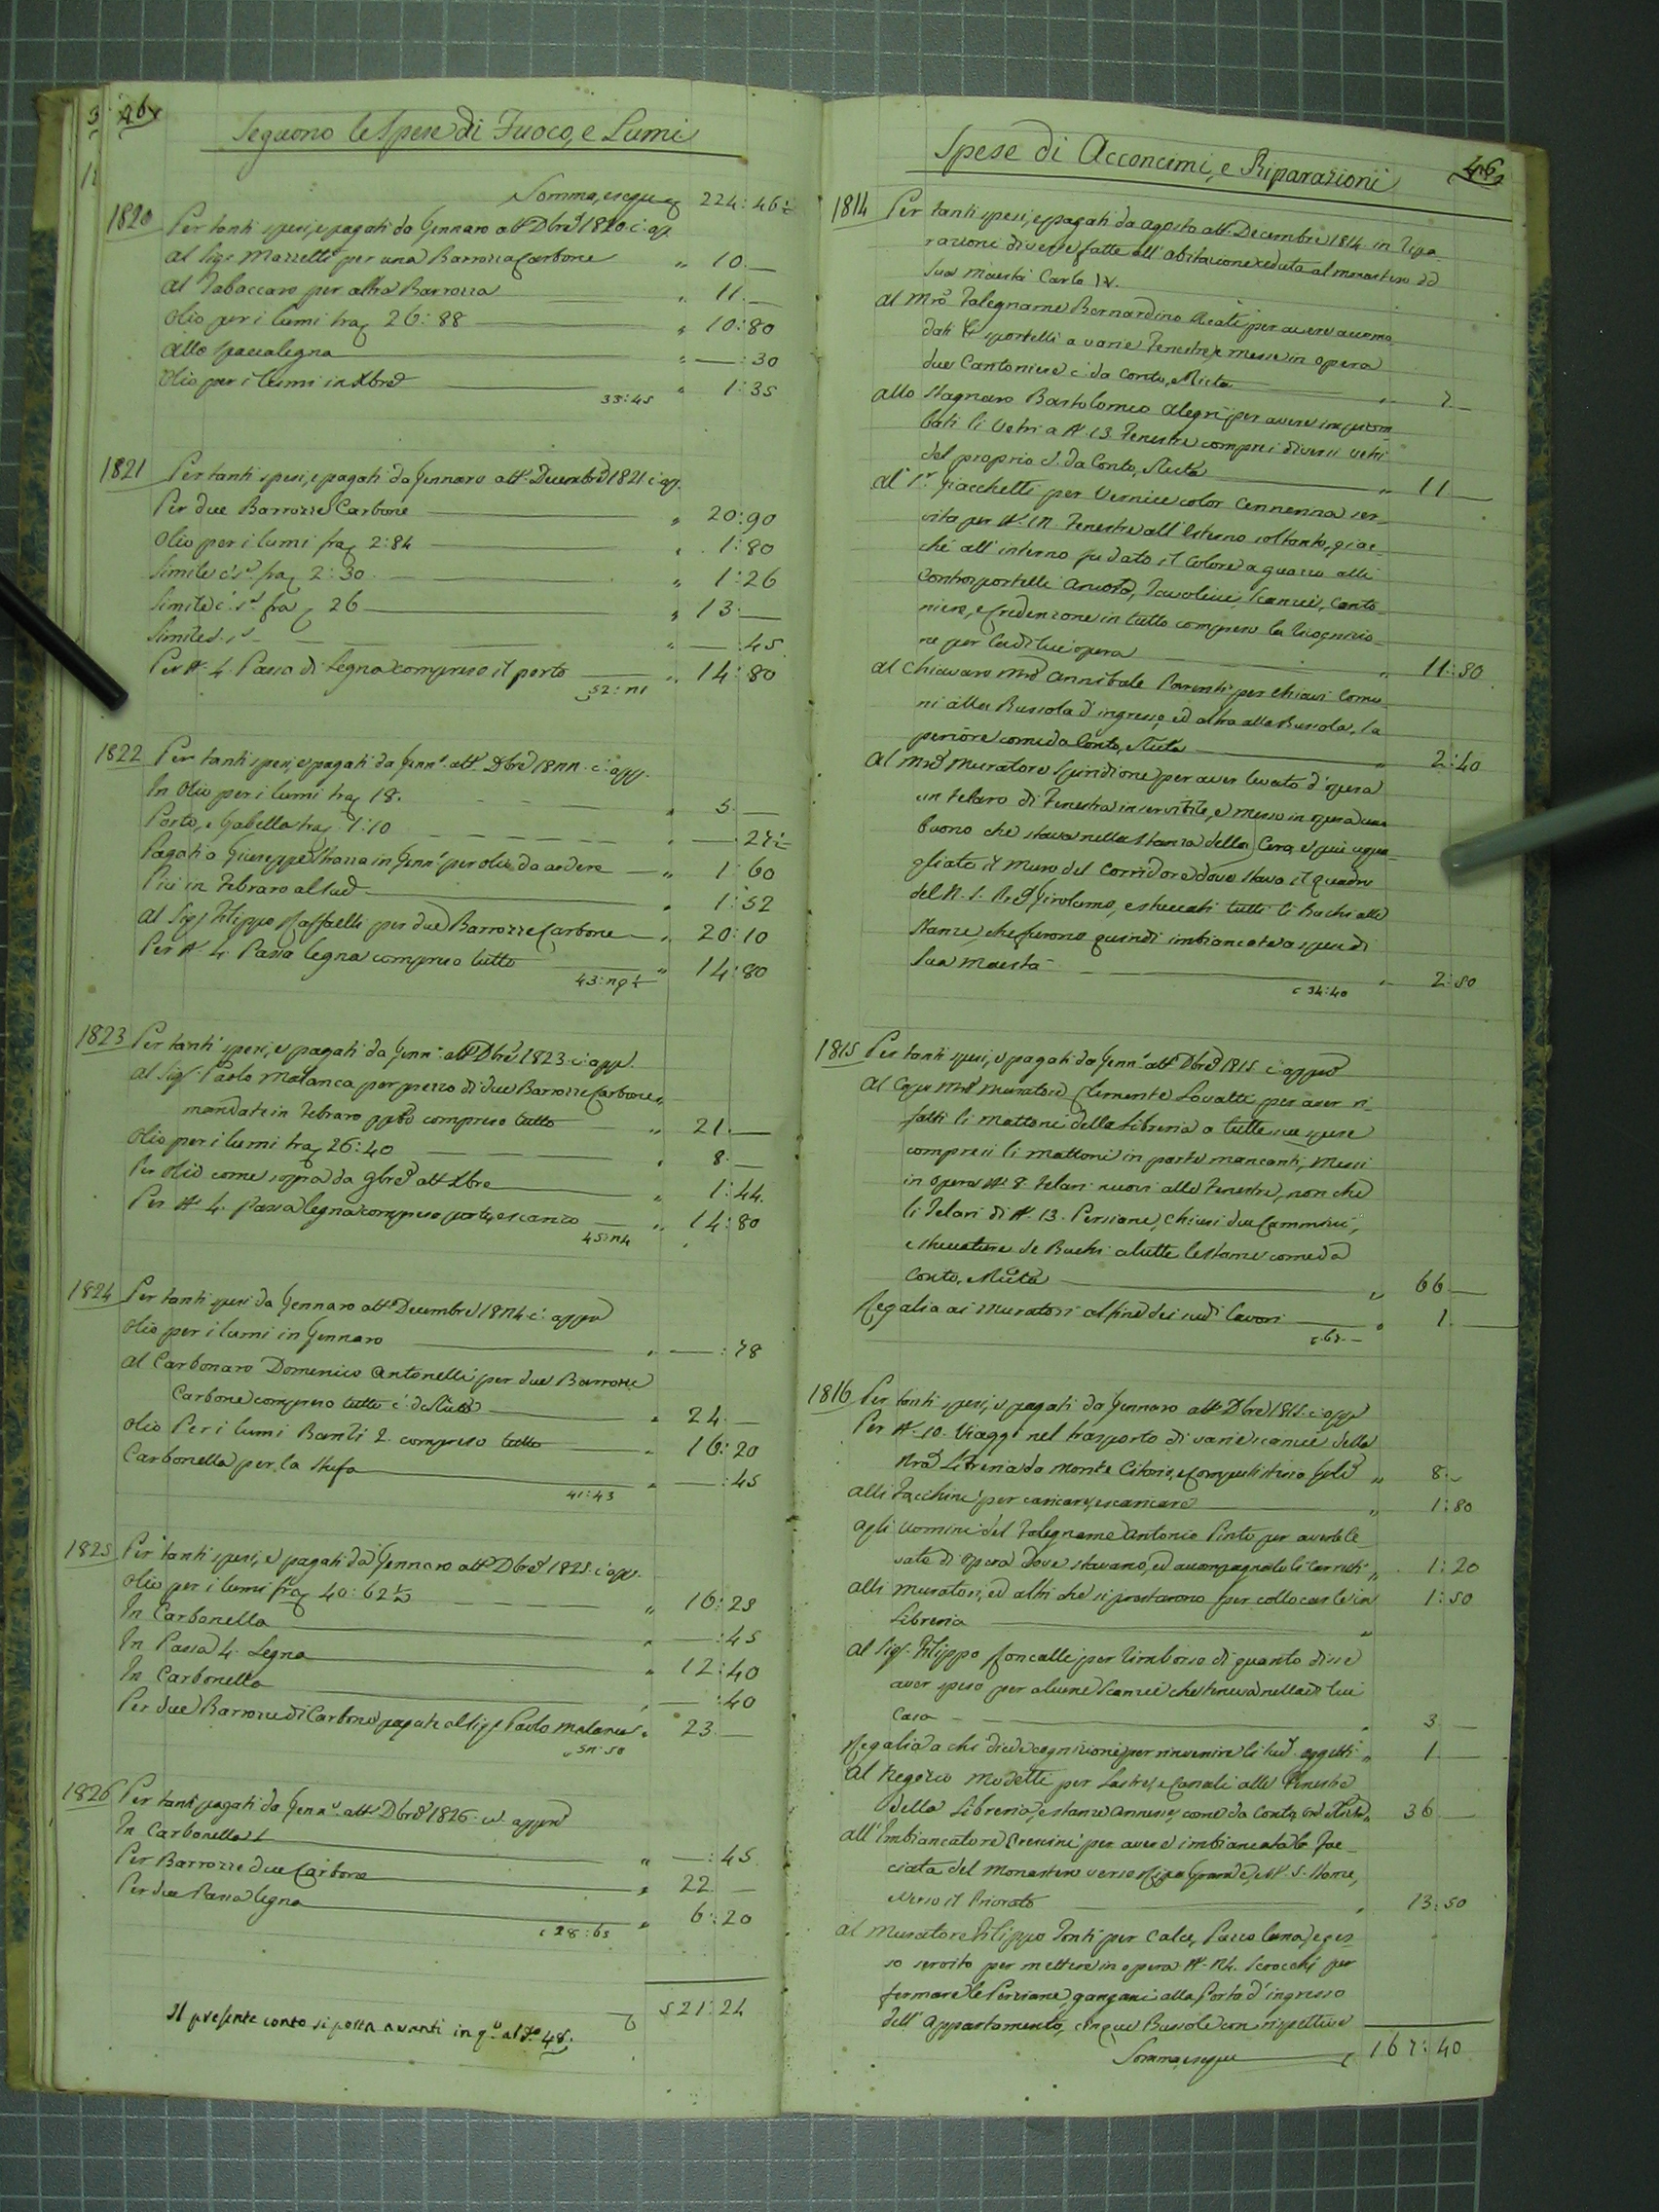 3
46
Seguono le Spese di Fuoco, e Lumi
Somma, e segue 224:46½
1820 Per tanti spesi, e pagati da Gennaro all Dbre 1820 c: app.
Al Sigr Mazzetti per una Barrozza Carbone " 10.—
Al Tabaccaro per altra Barrozza " 11.—
Olio per i lumi frag 26:88 — " 10:80
Allo Spaccalegna " —:30
Olio per i lumi in Xbre — " 1:35
33:45
1821 Per tanti spesi, e pagati da Gennaro all Decembre 1821 c: ap.
Per due Barrozze Carbone — " 20:90
Olio per i lumi frag 2:84 — " 1:80
Simile c: s.a frag 2:30 — " 1:26
Simile c: s.a frag 26 — " 13.—
Simile c. s.a — " —:45
Per N. 4. Passa di Legna compreso il porto — " 14:80
52:21
1822 Per tanti spesi, e pagati da Genn. all Dbre 1822. c: app.
In Olio per i lumi frag 18. — " 5.—
Porto, e Gabella frag 1:10 — " —:27½
Pagati a Giuseppe Strazza in Genn. per olio da ardere — " 1:60
Più in Febraro al sud — " 1:52
Al Sigr Filippo Raffaelli per due Barrozze Carbone — " 20:10
Per N. 4. Passa legna compreso tutto — " 14:80
43:29½
1823 Per tanti spesi, e pagati da Genn. all Dbre 1823 c: app.
Al Sigr Paolo Malanca per prezzo di due Barrozze Carbone
mandate in Febraro compreso tutto — " 21.—
Olio per i lumi frag 26:40 — " 8.—
Per Olio come sopra da 9bre all Xbre — " 1:44.
Per N. 4. passa legna compreso porto, e scarico — " 14:80
45:24
1824 Per tanti spesi da Gennaro all Decembre 1824 c: app
Olio per i lumi in Gennaro — " —:78
Al Carbonaro Domenico Antonelli per due Barrozze
Carbone compreso tutto c: da Ricta — " 24.—
Olio Per i lumi Barili 2. compreso tutto — " 16:20
Carbonella per la stufa — " —:45
41:43
1825 Per tanti spesi, e pagati da Gennaro all Dbre 1825. c: app.
Olio per i lumi frag 40:62½ — " 16:25
In Carbonella — " —:45
In Passa 4. Legna — " 12:40
In Carbonella — " —:40
Per due Barrozze di Carbone pagate al Sigr Paolo Malanca " 23.—
52:50
1826 Per tanti pagati da Genn. all Dbre 1826. c. app
In Carbonella — " —:45
Per Barrozze due Carbone — " 22.—
Per due Passa legna — " 6:20
28:65
521:24
Il presente conto si porta avanti in q.o al f.o 48.
Spese di Acconcimi, e Riparazioni
46
1814 Per tanti spesi, e pagati da Agosto all Decembre 1814 in ripa-
razioni diverse fatte all'abitazione ceduta al monastero da
Sua Maestà Carlo IV.
Al Mro Falegname Bernardino Reati per avere accomo-
dati li sportelli a varie Fenestre, e messe in opera
due Cantoniere c: da Conto, Ricta — " 7.—
Allo Stagnaro Bartolomeo Alegri per avere impiom-
bati li Vetri a N. 13. Fenestre compresi diversi vetri
del proprio c: da Conto, Ricta — " 11.—
Al Sr. Giacchetti per Vernice color Cennerina ser-
vita per N. 12. Fenestre all'esterno soltanto, giac-
chè all'interno fu dato il Colore a guazzo alli
Controsportelli ancora, Tavoline, Scanzie, Canto-
niere, e Credenzone in tutto compreso la ricognizio-
ne per la di lui opera — " 11:50
Al Chiavaro Mro Annibale Parenti per chiavi Comu-
ni alla Bussola d'ingresso, ed altra alla Bussola, su
periore come da Conto, Ricta — " 2:40
Al Mro Muratore Spiridione per aver levato d'opera
un telaro di Fenestra inservibile, e messo in opera uno
buono che stava nella Stanza della Cena, e più ugua-
gliato il muro del Corridore dove stava il quadro
del N. S. P. Girolamo, e stuccati tutti li Buchi alle
Stanze, che furono quindi imbiancate a spese di
Sua Maestà — " 2:50
34:40
1815 Per tanti spesi, e pagati da Genn. all Dbre 1815. c: app
Al Capo Mro Muratore Clemente Lovatti per aver ri-
fatti li mattoni della Libreria a tutte sue spese
compresi li mattoni in parte mancanti, messi
in opera N. 8. telari nuovi alle Fenestre, non che
li telari di N. 13. Persiane, chiusi due Cammini,
e stuccature de Buchi a tutte le stanze come da
Conto, Ricta — " 66.—
Regalia ai Muratori al fine dei sudi lavori — " 1.—
67.—
1816 Per tanti spesi, e pagati da Gennaro all Dbre 1816. c: app
Per N. 10. Viaggi nel trasporto di varie scanzie della
Nra Libreria da Monte Citorio, e " 8.—
Alli Facchini per caricare, e scaricare — " 1:80
Agli uomini del Falegname Antonio Pinto per averle le-
vate di opera dove stavano, ed accompagnato li Carretti " 1:20
Alli Muratori, ed altri che si prestarono per collocarle in 1:50
Libreria — "
Al Sigr Filippo Roncalli per rimborso di quanto disse
aver speso per alcune Scanzie che teneva nella di lui
Casa — " 3.—
Regalia a chi diede cognizione per rinvenire li sud. oggetti " 1.—
Al Negozio Modetti per Lastre, e Cassali alle Fenestre
della Libreria, e stanze annesse, come da Conto, Ricta " 36.—
All'Imbiancatore Crescini per avere imbiancata la Fac-
ciata del Monastero verso Ripa Grande, e N. 5. Stanze,
verso il Priorato — " 13:50
Al Muratore Filippo Tonti per Calce, Pozzolana, e ges-
so servito per mettere in opera N. 24. Scrocchi per
fermare le Persiane, gangani alla Porta d'ingresso
dell'Appartamento, cinque Bussole con rispettive
Somma, e segue — 167:40